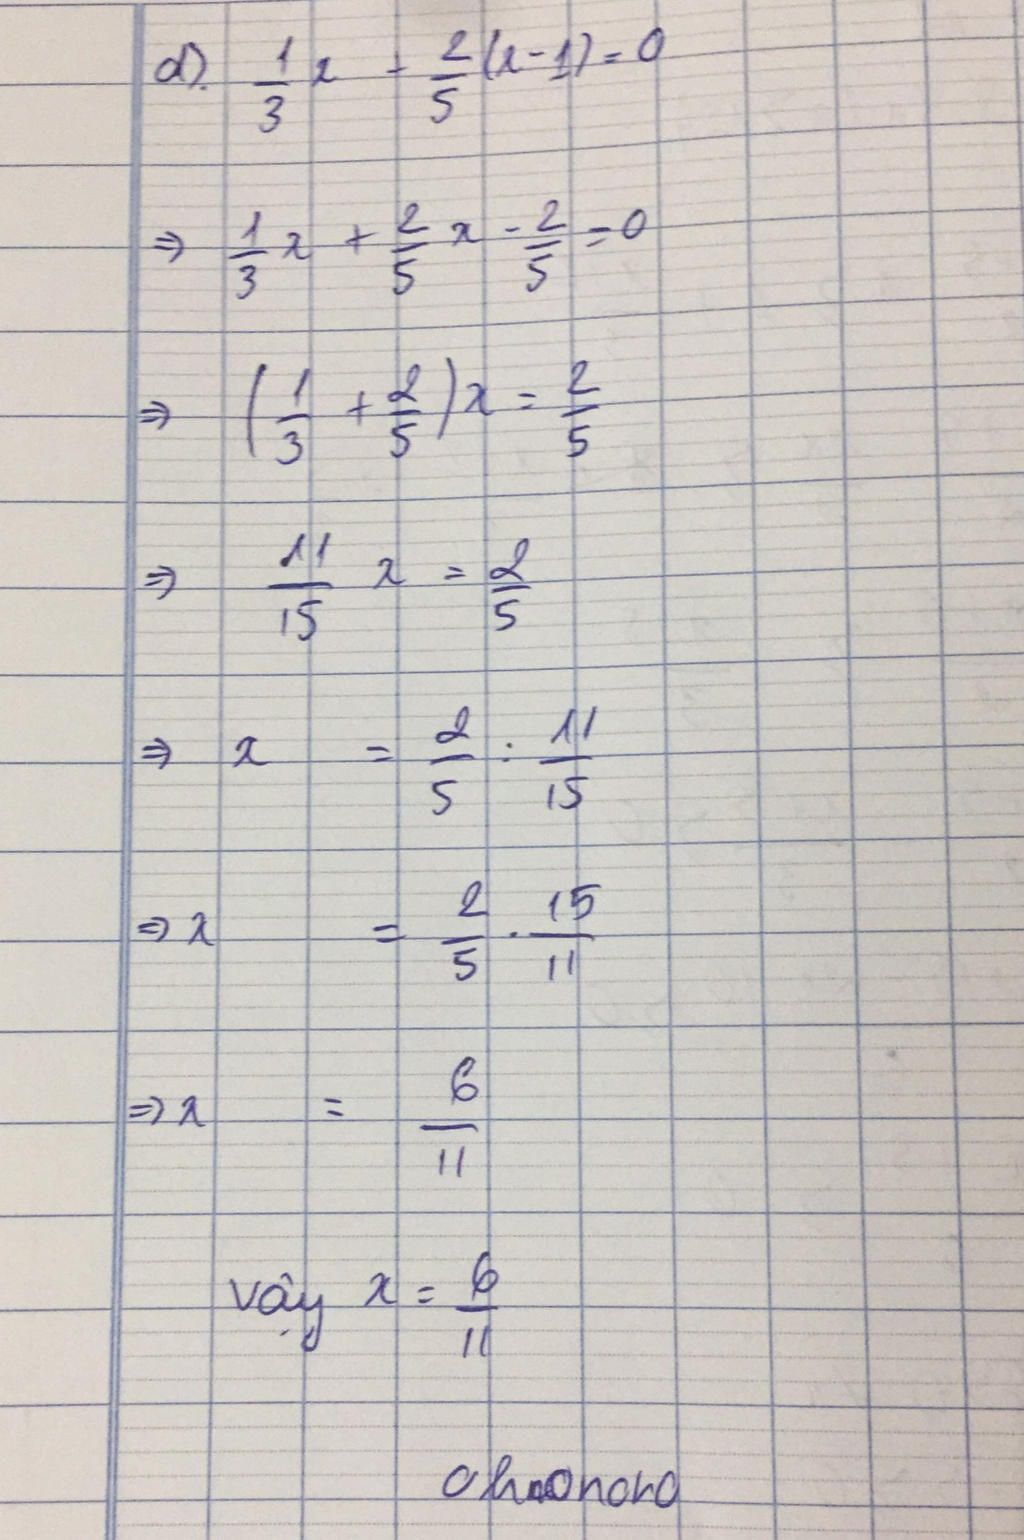 d). 1/3 x - 2/5 (x-1) = 0
⇒ 1/3 x + 2/5 x - 2/5 = 0
⇒ (1/3 + 2/5) x = 2/5
⇒ 11/15 x = 2/5
⇒ x = 2/5 : 11/15
⇒ x = 2/5 . 15/11
⇒ x = 6/11
Vậy x = 6/11